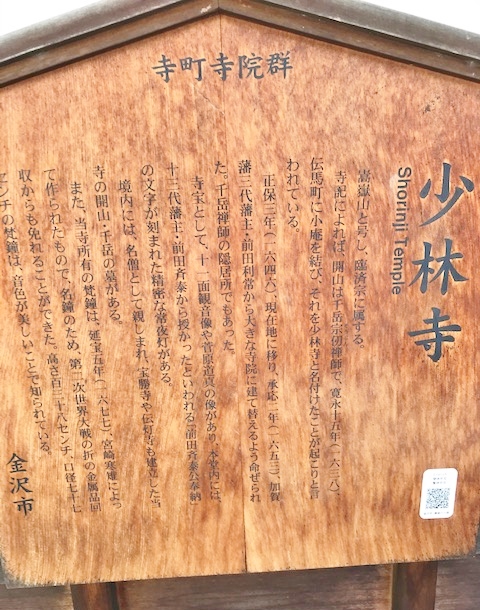 寺町寺院群
少林寺
Shorinji Temple
嵩嶽山と号し、臨済宗に属する。
寺記によれば、開山は千岳宗仭禅師で、寛永十五年(一六三八)
伝馬町に小庵を結び、それを少林寺と名付けたことが起こりと言
われている。
正保三年(一六四六)、現在地に移り、承応二年(一六五三)加賀
藩三代藩主・前田利常から大きな寺院に建て替えるよう命ぜられ
た。千岳禅師の隠居所でもあった。
寺宝として、十一面観音像や菅原道真の像があり、本堂内には、
十三代藩主・前田斉泰から授かったといわれる「前田斉泰公奉納」
の文字が刻まれた精密な常夜灯がある。
境内には、名僧として親しまれ、宝勝寺や伝灯寺も建立した当
寺の開山・千岳の墓がある。
また、当寺所有の梵鐘は、延宝五年(一六七七)、宮崎寒雉によっ
て作られたもので、名鐘のため、第二次世界大戦の折の金属品回
収からも免れることができた。高さ百三十八センチ、口径七十七
センチの梵鐘は、音色が美しいことで知られている。
金沢市